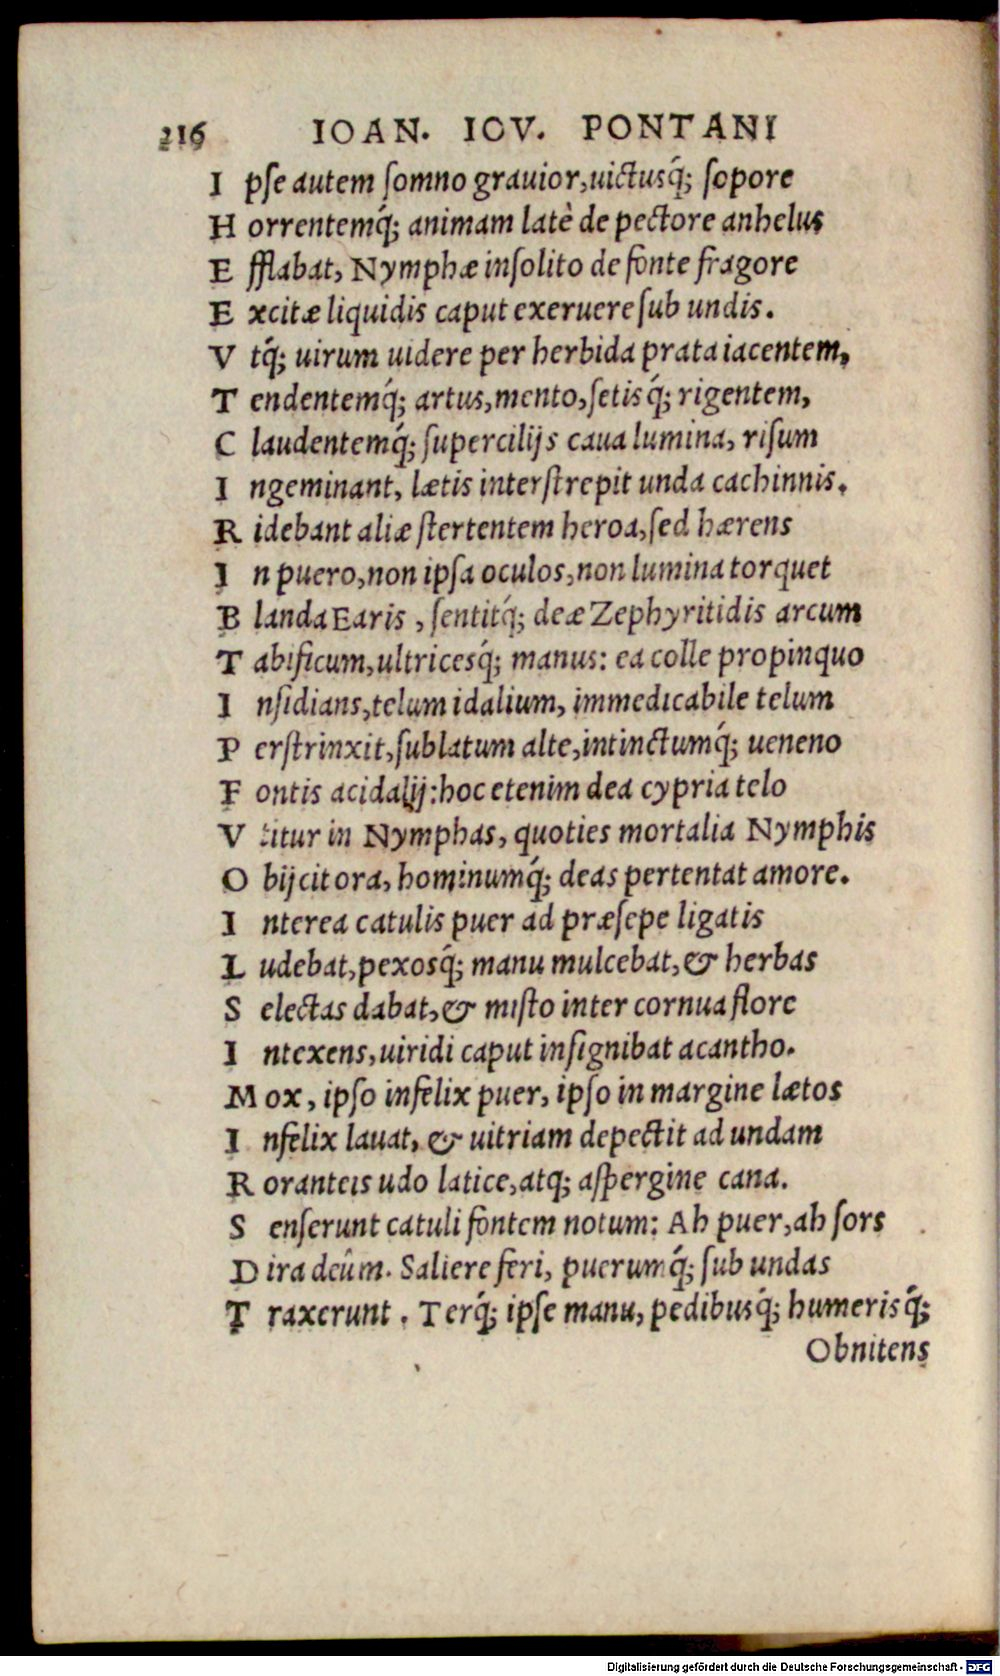 216 IOAN. IOV. PONTANI
I pse autem somno grauior, uictusq́; sopore
H orrentemq́; animam latè de pectore anhelus
E fflabat, Nymphæ insolito de fonte fragore
E xcitæ liquidis caput exeruere sub undis.
V tq́; uirum uidere per herbida prata iacentem,
T endentemq́; artus, mento, setisq́; rigentem,
C laudentemq́; supercilijs caua lumina, risum
I ngeminant, lætis interstrepit unda cachinnis.
R idebant aliæ stertentem heroa, sed hærens
I n puero, non ipsa oculos, non lumina torquet
B landa Earis, sentitq́; deæ Zephyritidis arcum
T abificum, ultricesq́; manus: ea colle propinquo
I nsidians, telum idalium, immedicabile telum
P erstrinxit, sublatum alte, intinctumq́; ueneno
F ontis acidalij: hoc etenim dea cypria telo
V titur in Nymphas, quoties mortalia Nymphis
O bijcit ora, hominumq́; deas pertentat amore.
I nterea catulis puer ad præsepe ligatis
L udebat, pexosq́; manu mulcebat, & herbas
S electas dabat, & misto inter cornua flore
I ntexens, uiridi caput insignibat acantho.
M ox, ipso infelix puer, ipso in margine lætos
I nfelix lauat, & uitriam depectit ad undam
R oranteis udo latice, atq; aspergine cana.
S enserunt catuli fontem notum: Ah puer, ah sors
D ira deûm. Saliere feri, puerumq́; sub undas
T raxerunt. Terq́; ipse manu, pedibusq́; humerisq́;
Obnitens
Digitalisierung gefördert durch die Deutsche Forschungsgemeinschaft - DFG